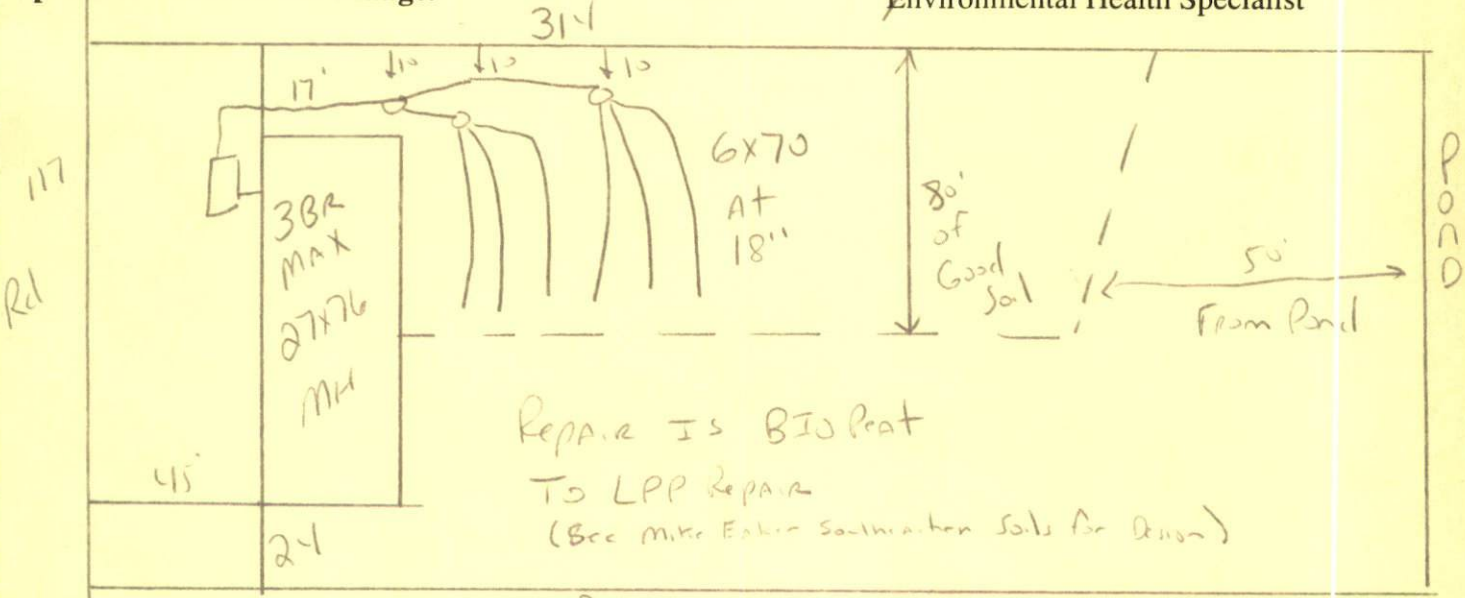 Environmental Health Specialist
314
10
10
10
17'
117
Rd
3BR
MAX
27X76
MH
6X70
At
18"
80'
of
Good
Soil
50'
From Pond
POnD
Repair Is BIO Peat
To LPP Repair
(See Mike Soils for Design)
45'
24